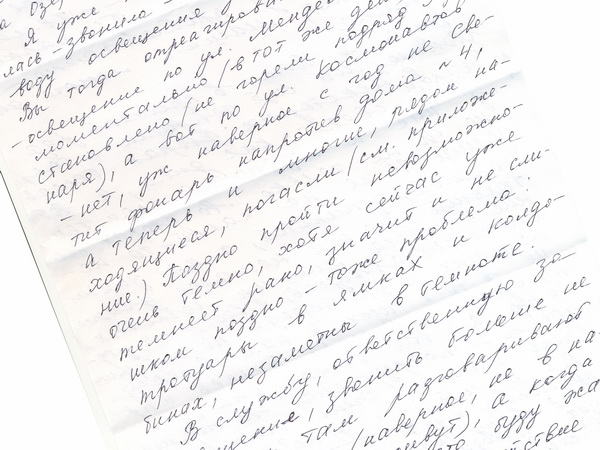 а Озер
Я уже
лась - звонила -
воду освещения
Вы тогда отреагирова
- освещение по ул. Менде
моментально / в тот же де
становлено (не горели подряд
наря), а вот по ул. Космонавтов
- нет, уже наверное с год не све-
тит фонарь напротив дома ~ 4,
а теперь и многие, рядом на-
ходящиеся, погасли / см. приложе-
ние.) Поздно пройти невозможно-
очень темно, хотя сейчас уже
темнеет рано, значит и не сли-
шком поздно - тоже проблема!
тротуары в ямках и колдо-
бинах, незаметны в темноте.
В службу, ответственную за
вещение, звонить больше не
там разговаривают
(наверное, не в на
ивут), а когда
буду жа
йствие